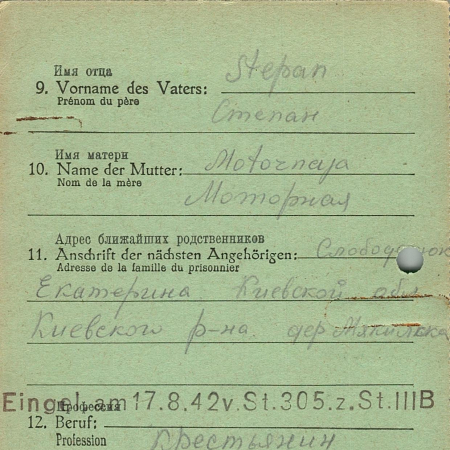 Имя отца
9. Vorname des Vaters: Stepan
Prénom du père
Степан
Имя матери
10. Name der Mutter: Motornaja
Nom de la mère
Моторная
Адрес ближайших родственников
11. Anschrift der nächsten Angehörigen:
Adresse de la famille du prisonnier
Екатерина Киевской обл
Киевского р-на. дер
Eingel. am 17.8.42 v. St. 305. z. St. III B
Професcия
12. Beruf: Крестьянин
Profession